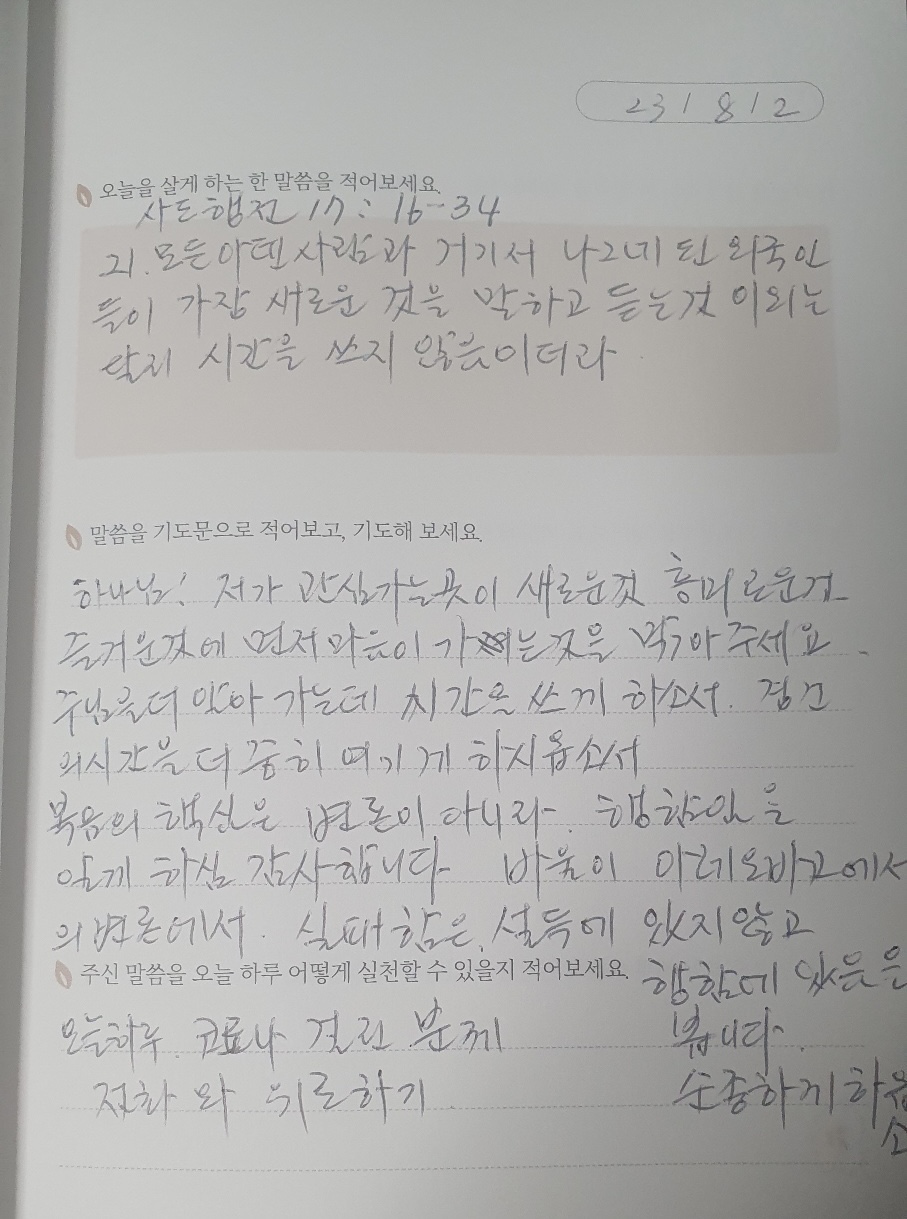 23/8/2
오늘을 살게 하는 한 말씀을 적어보세요.
사도행전 17:16-34
21. 모든 아덴 사람과 거기서 나그네 된 외국인
들이 가장 새로운 것을 말하고 듣는것 이외는
달리 시간을 쓰지 않음이더라
말씀을 기도문으로 적어보고, 기도해 보세요.
하나님! 저가 관심가는곳이 새로운것 흥미로운것
즐거운것에 먼저 마음이 가는것을 막아주세요.
주님을더 알아 가는데 시간을 쓰게 하소서. 경건
의시간을 더 중히 여기게 하시옵소서
복음의 핵심은 변론이 아니라. 행함임을
알게 하심 감사합니다. 바울이 아레오바고에서
의변론에서. 실패함은, 설득에 있지않고
주신 말씀을 오늘 하루 어떻게 실천할 수 있을지 적어보세요.
행함에 있음을
봅니다.
오늘하루. 코로나 걸린 분께
전화 와 위로하기
순종하게하옵
소